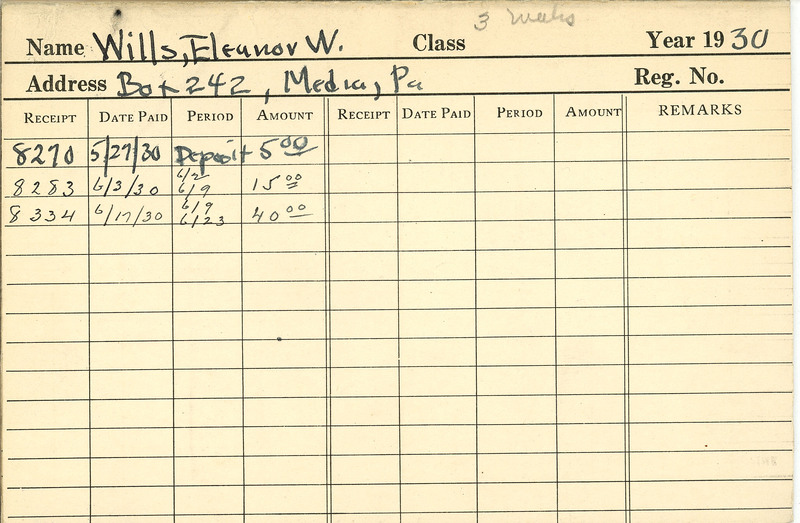 3 weeks
Name Wills, Eleanor W. Class Year 1930
Address Box 242, Media, Pa Reg. No.
RECEIPT DATE PAID PERIOD AMOUNT RECEIPT DATE PAID PERIOD AMOUNT REMARKS
8270 5/27/30 Deposit 5 00
8283 6/3/30 6/2 6/9 15 00
8334 6/17/30 6/9 6/23 40 00